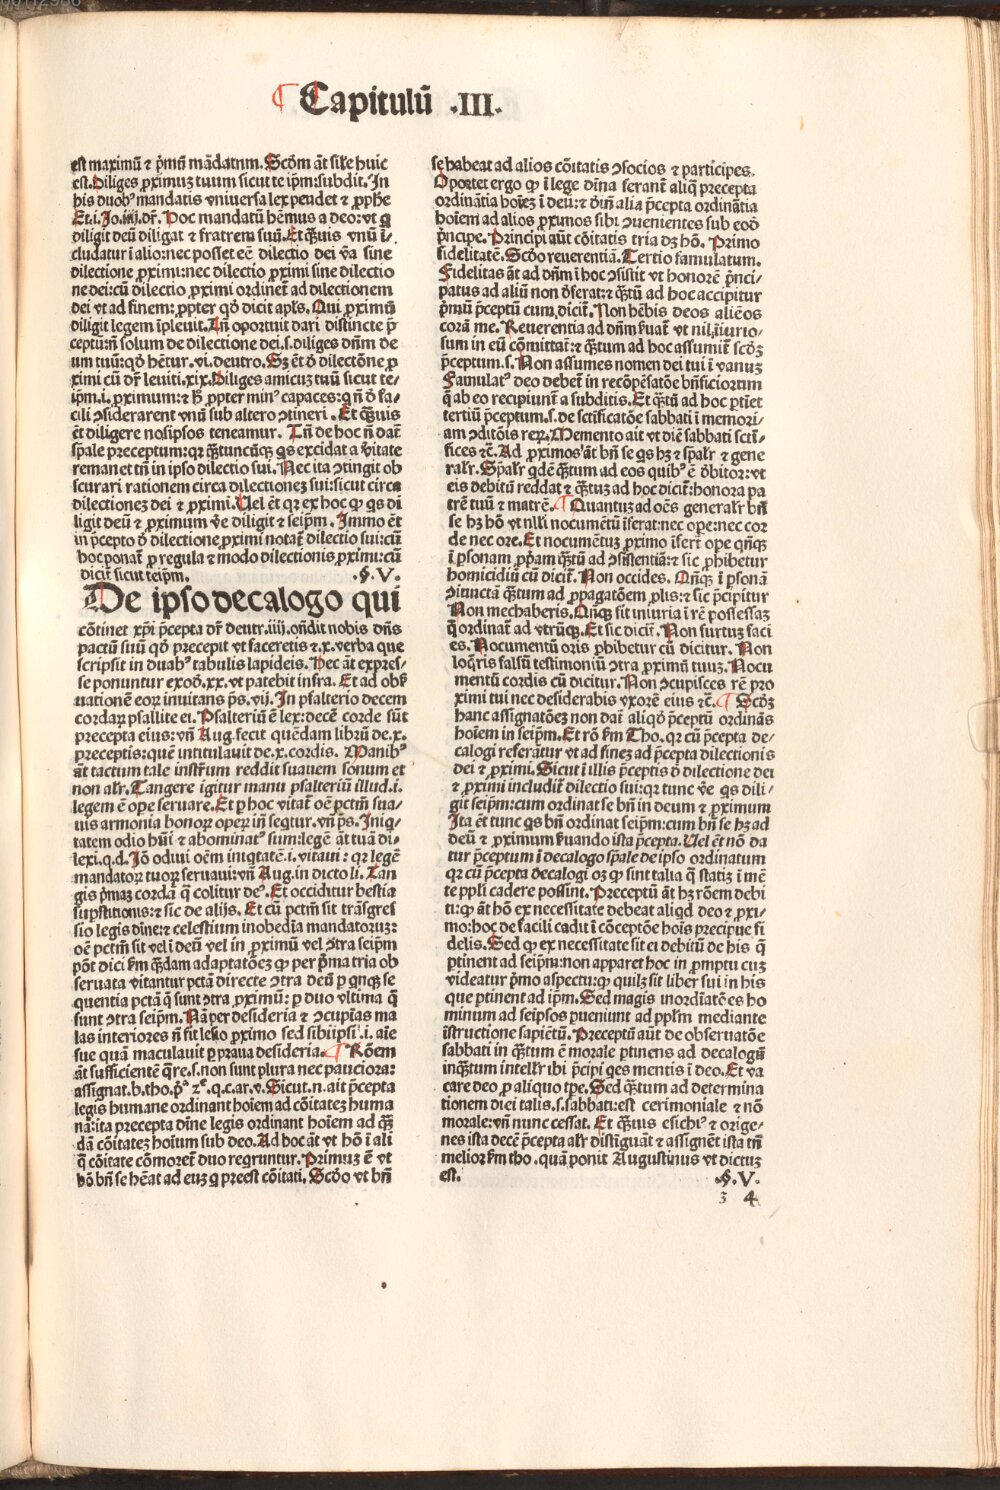 ¶ Capitulū .III.
est maximū ⁊ p̄mū mādatum. Scd̄m āt sil̄e huic
est. Diliges ꝓximuꝫ tuum sicut te ip̄m: subdit. In
his duobꝰ mandatis vniuersa lex pendet ⁊ ꝓphe
Et .i. Jo. iiij. dr̄. Hoc mandatū hēmus a deo: vt q̇
diligit deū diligat ⁊ fratrem suū. Et q̄uis vnū ī⸗
cludatur ī alio: nec posset eē dilectio dei v̄a sine
dilectione ꝓximi: nec dilectio ꝓximi sine dilectio
ne dei: cū dilectio ꝓximi ordinet̄ ad dilectionem
dei vt ad finem: ꝓpter qd̄ dicit apl̄s. Qui ꝓximū
diligit legem īpleuit. Tn̄ oportuit dari distincte p̄
ceptū: n̄ solum de dilectione dei .s. diliges dn̄m de
um tuū: qd̄ hētur .vi. deutro. Sꝫ ēt d̄ dilectōne ꝓ
ximi cū dr̄ leuiti. xix. Diliges amicuꝫ tuū sicut te⸗
ip̄m .i. ꝓximum: ⁊ h̄ ꝓpter minꝰ capaces: q̄ n̄ d̄ fa⸗
cili ↄsiderarent vnū sub altero ↄtineri. Et q̄uis
ēt diligere nosipsos teneamur. Tn̄ de hoc n̄ dat̄
sp̄ale preceptum: qꝛ q̄tuncūqꝫ q̇s excidat a v̄itate
remanet tn̄ in ipso dilectio sui. Nec ita ↄtingit ob
scurari rationem circa dilectioneꝫ sui: sicut circa
dilectioneꝫ dei ⁊ ꝓximi. Uel ēt qꝛ ex hoc ꝙ q̇s di
ligit deū ⁊ ꝓximum v̄e diligit ⁊ seip̄m. Immo ēt
in p̄cepto d̄ dilectione ꝓximi notat̄ dilectio sui: cū
hoc ponat̄ ꝓ regula ⁊ modo dilectionis ꝓximi: cū
dicit̄ sicut teip̄m. .§. V.
De ipso decalogo qui
cōtinet xp̄i p̄cepta dr̄ deutr. iiij. oñdit nobis dn̄s
pactū suū qd̄ precepit vt faceretis ⁊ .x. verba que
scripsit in duabꝰ tabulis lapideis. Hec āt expres⸗
se ponuntur exod̄. xx. vt patebit infra. Et ad obẜ
uationē eoꝝ inuitans p̄s. vij. In psalterio decem
cordaꝝ psallite ei. Psalteriū ē lex: decē corde sūt
precepta eius: vn̄ Aug. fecit quēdam librū de .x.
preceptis: quē intitulauit de .x. cordis. Manibꝰ
āt tactum tale instr̄um reddit suauem sonum et
non alr̄. Tangere igitur manu psalteriū illud .i.
legem ē oꝑe seruare. Et ꝑ hoc vitat̄ oē pctm̄ sua⸗
uis armonia bonoꝝ oꝑeꝝ in̄ seqtur. vn̄ p̄s. Iniq̇⸗
tatem odio hūi ⁊ abominatꝰ sum: legē āt tuā di⸗
lexi. q.d. Jō odiui oēm iniq̇tatē .i. vitaui: qꝛ legē
mandatoꝝ tuoꝝ seruaui: vn̄ Aug. in dicto li. Tan
gis p̄maꝫ cordā q̄ colitur deꝰ. Et occiditur bestia
suꝑstitionis: ⁊ sic de alijs. Et cū pctm̄ sit trāsgres
sio legis dine: ⁊ celestium inobedīa mandatoruꝫ:
oē pctm̄ sit vel ī deū vel in ꝓximū vel ↄtra seip̄m
pōt dici ẜm q̄dam adaptatōeꝫ ꝙ per p̄ma tria ob
seruata vitantur pctā directe ↄtra deū ꝑ q̇nqꝫ se
quentia pctā q̄ sunt ↄtra ꝓximū: ꝑ duo vltima q̄
sunt ↄtra seip̄m. Nā per desideria ⁊ ↄcupīas ma
las interiores n̄ fit lesio ꝓximo sed sibiipsi .i. aīe
sue quā maculauit ꝑ praua desideria. ¶ Rōem
āt sufficientē q̄re .s. non sunt plura nec paucioꝛa:
assignat. b. tho. p̄ᵃ 2ᵉ .q. c. ar. v. Sicut .n. ait p̄cepta
legis humane ordinant hoīem ad cōitateꝫ huma
nā: ita precepta dīne legis ordinant hoīem ad q̄
dā cōitateꝫ hoīum sub deo. Ad hoc āt vt hō ī ali
q̄ cōitate cōmoret̄ duo reqruntur. Primuꝫ ē vt
hō bn̄ se hēat ad euꝫ q̇ preest cōitati. Scd̄o vt bn̄
se habeat ad alios cōitatis ↄsocios ⁊ participes.
Oportet ergo ꝙ ī lege dīna ferant̄ aliq̄ precepta
ordinātia hoīeꝫ ī deū: ⁊ q̄dā alia p̄cepta ordinātia
hoīem ad alios ꝓximos sibi ↄuenientes sub eod̄
p̄ncipe. Principi aūt cōitatis tria dꝫ hō. Primo
fidelitatē. Scd̄o reuerentiā. Tertio famulatum.
Fidelitas āt ad dn̄m ī hoc ↄsistit vt honorē p̄nci⸗
patus ad aliū non d̄ferat: ⁊ q̄tū ad hoc accipitur
p̄mū p̄ceptū cum dicit̄. Non hēbis deos aliēos
corā me. Reuerentia ad dn̄m ẜuat̄ vt nil īiurio⸗
sum in eū cōmittat̄: ⁊ q̄tum ad hoc assumit̄ scd̄ꝫ
p̄ceptum .s. Non assumes nomen dei tui ī vanuꝫ
Famulatꝰ deo debet̄ in recōpēsatōe bn̄ficiorum
q̄ ab eo recipiunt̄ a subditis. Et q̄tū ad hoc ꝑtīet
tertiū p̄ceptum .s. de sctificatōe sabbati ī memori⸗
am ↄditōis reꝝ. Memento ait vt diē sabbati scti⸗
fices ⁊c̄. Ad ꝓximos āt bn̄ se q̇s hꝫ ⁊ spalr̄ ⁊ gene
ralr̄. Spalr̄ qdē q̄tum ad eos quibꝰ ē d̄bitor: vt
eis debitū reddat ⁊ q̄tuꝫ ad hoc dicit̄: honora pa
trē tuū ⁊ matrē. ¶ Quantuꝫ ad oēs generalr̄ bn̄
se hꝫ hō vt nlli nocumētū īferat: nec ope: nec cor
de nec ore. Et nocumētuꝫ ꝓximo īfert̄ ope qn̄qꝫ
ī ꝑsonam ꝓpām q̄tū ad ↄsistentiā: ⁊ sic ꝓhibetur
homicidiū cū dicit̄. Non occides. Qn̄qꝫ ī ꝑsonā
ↄiunctā q̄tum ad ꝓpagatōem ꝓlis: ⁊ sic p̄cipitur
Non mechaberis. Qn̄qꝫ sit iniuria ī rē possessaꝫ
q̄ ordinat̄ ad vtrūqꝫ. Et sic dicit̄. Non furtuꝫ faci
es. Nocumentū oris ꝓhibetur cū dicitur. Non
loq̄ris falsū testimoniū ↄtra ꝓximū tuuꝫ. Nocu
mentū cordis cū dicitur. Non ↄcupisces rē pro
ximi tui nec desiderabis vxorē eius ⁊c̄. ¶ Scd̄ꝫ
hanc assignatōeꝫ non dat̄ aliqd̄ p̄ceptū ordinās
hoīem in seip̄m. Et rō ẜm Tho. qꝛ cū p̄cepta de⸗
calogi referātur vt ad fineꝫ ad p̄cepta dilectionis
dei ⁊ ꝓximi. Sicut ī illis p̄ceptis d̄ dilectione dei
⁊ ꝓximi includit̄ dilectio sui: qꝛ tunc v̄e q̇s dili⸗
git seip̄m: cum ordinat se bn̄ in deum ⁊ ꝓximum
Ita ēt tunc q̇s bn̄ ordinat seip̄m: cum bn̄ se hꝫ ad
deū ⁊ ꝓximum ẜuando ista p̄cepta. Uel ēt nō da
tur p̄ceptum ī decalogo sp̄ale de ipso ordinatum
qꝛ cū p̄cepta decalogi oꝫ ꝙ sint talia q̄ statiꝫ ī mē
te ppli cadere possint. Preceptū āt hꝫ rōem debi
ti: ꝙ āt hō ex necessitate debeat aliqd deo ⁊ ꝓxi⸗
mo: hoc de facili cadit ī cōceptōe hoīs precipue fi
delis. Sed ꝙ ex necessitate sit ei debitū de his q̄
ꝑtinent ad seip̄m: non apparet hoc in promptu cuꝫ
videatur p̄mo aspectu: ꝙ quilꝫ sit liber sui in his
que ꝑtinent ad ip̄m. Sed magis inordīatēes ho
minum ad seipsos ꝓueniunt ad pplm̄ mediante
īstructione sapiētū. Preceptū aūt de obseruatōe
sabbati in q̄tum ē morale ꝑtinens ad decalogū
inq̄tum intellr̄ ibi p̄cipi q̄es mentis ī deo. Et va
care deo ꝓ aliquo tp̄e. Sed q̄tum ad determina
tionem diei talis .s. sabbati: est cerimoniale ⁊ nō
morale: vn̄ nunc cessat. Et q̄uis esichiꝰ ⁊ orige⸗
nes ista decē p̄cepta alr̄ distīguāt ⁊ assignēt ista tn̄
melior ẜm tho. quā ponit Augustinus vt dictuꝫ
est. .§. V.
3 4